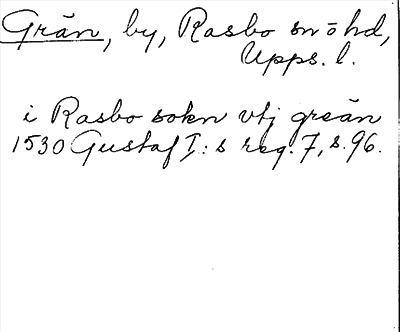 Grän, by, Rasbo sn o hd,
Upps. l.
i Rasbo sokn vtj greän
1530 Gustaf I:s reg. 7, s. 96.